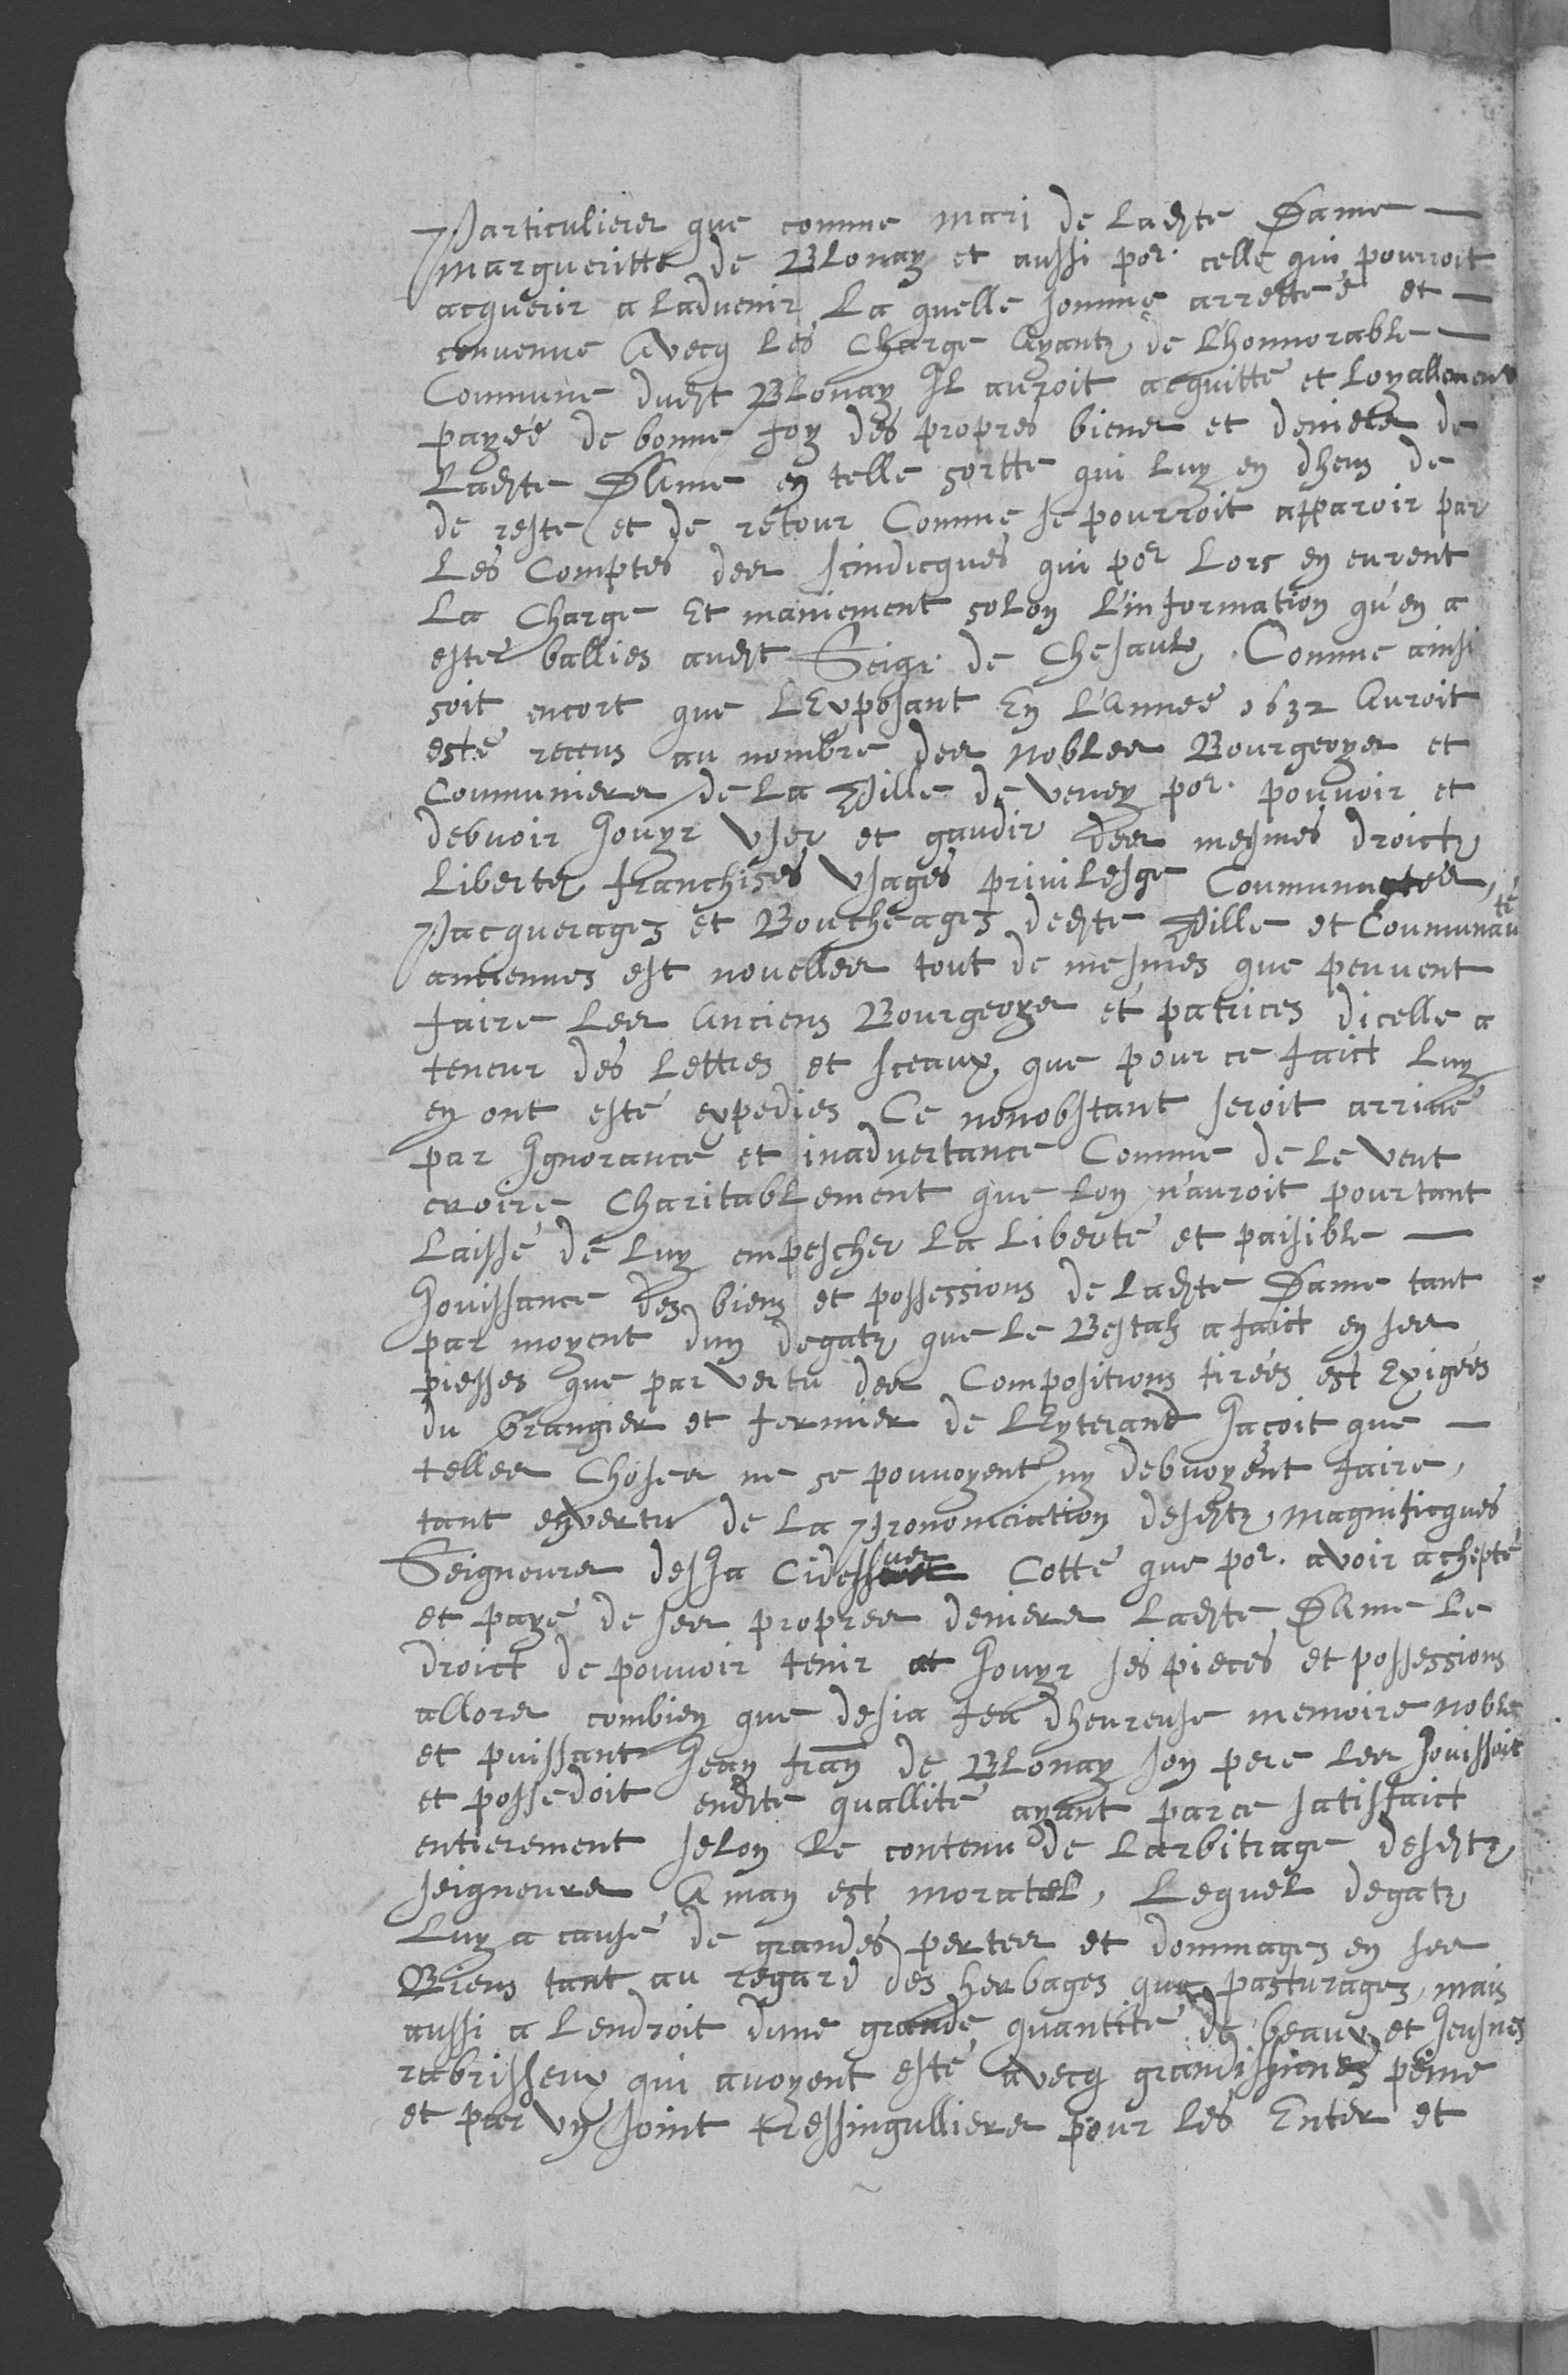 Particuliere que comme mari de ladte Dame
margueritte de Blonay et aussi por. celle qui pourroit
acquerir a ladvenir La quelle somme arrettée et
convenue Avecq les Charge Ayantz de L'honnorable
Commune dudt Blonay Il auroit acquitté et Loyallement
payéé de bonne foy des propres biens et deniers de
Ladte Dame en telle sortte qui luy en dheu de
de reste et de retour Comme se pourroit apparoir par
Les Comptes des scindicques qui por Lors en eurent
La Charge Et maniement selon L'information qu'en a
ester ballies audt Seigr. de Chesaulx. Comme ainsi
soit encort que LExposant En L'Année 1632 Auroit
esté receus au nombre des nobles Bourgeoys et
Communiers de La Ville de Vevey por. pouvoir et
debvoir Jouyr User et gaudir des mesmes droictz
Libertez franchises Usages privilesge
Pacquerages et Boucheages dedte Ville et Communauté
anciennes est novelles tout de mesmes que peuvent
faire Les Anciens Bourgeoys et patrices dicelle a
teneur des Lettres et sceaux que pour ce faict Luy
en ont esté expedies Ce nonobstant seroit arrivé
par Ignorance et inadvertance Comme de le veut
croire Charitablement que Lon n'auroit pourtant
Laissé de Luy empescher La Liberté et paisible
Jouissance des biens et possessions de Ladte Dame tant
par moyent dun degatz que le Bestalz a faict en ses
piesses que par vertu des Compositions tirées est Exigées
du Grangier et fermier de LEyterand Jaçoit que
telles Choses ne se pouvoyent ny debvoyent faire,
tant en vertu de La Prononciation desdtz magnificques
Seigneurs desja Cidessus Cotté que por. avoir achepté
et payé de ses propres deniers Ladte Dame Le
droict de pouvoir tenir et Jouyr ses pieces et possessions
allors combien que desia feu dheureuse memoire noble
et puissant Jean fran de Blonay son pere les Jouissoit
et possedoit endte quallité ayant parce satisfaict
entierement selon le contenu de Larbitrage desdtz
seigneurs Aman est moratel, Lequel degatz
Luy a causé de grandes pertes et dommages en ses
Biens tant au regard des herbages que pasturages, mais
aussi a Lendroit dune grande quantité de beaux et Jeusnes
rabrisseux qui avoyent esté avecq grandissimes peine
et par un soint tressingulliere pour les Enter et